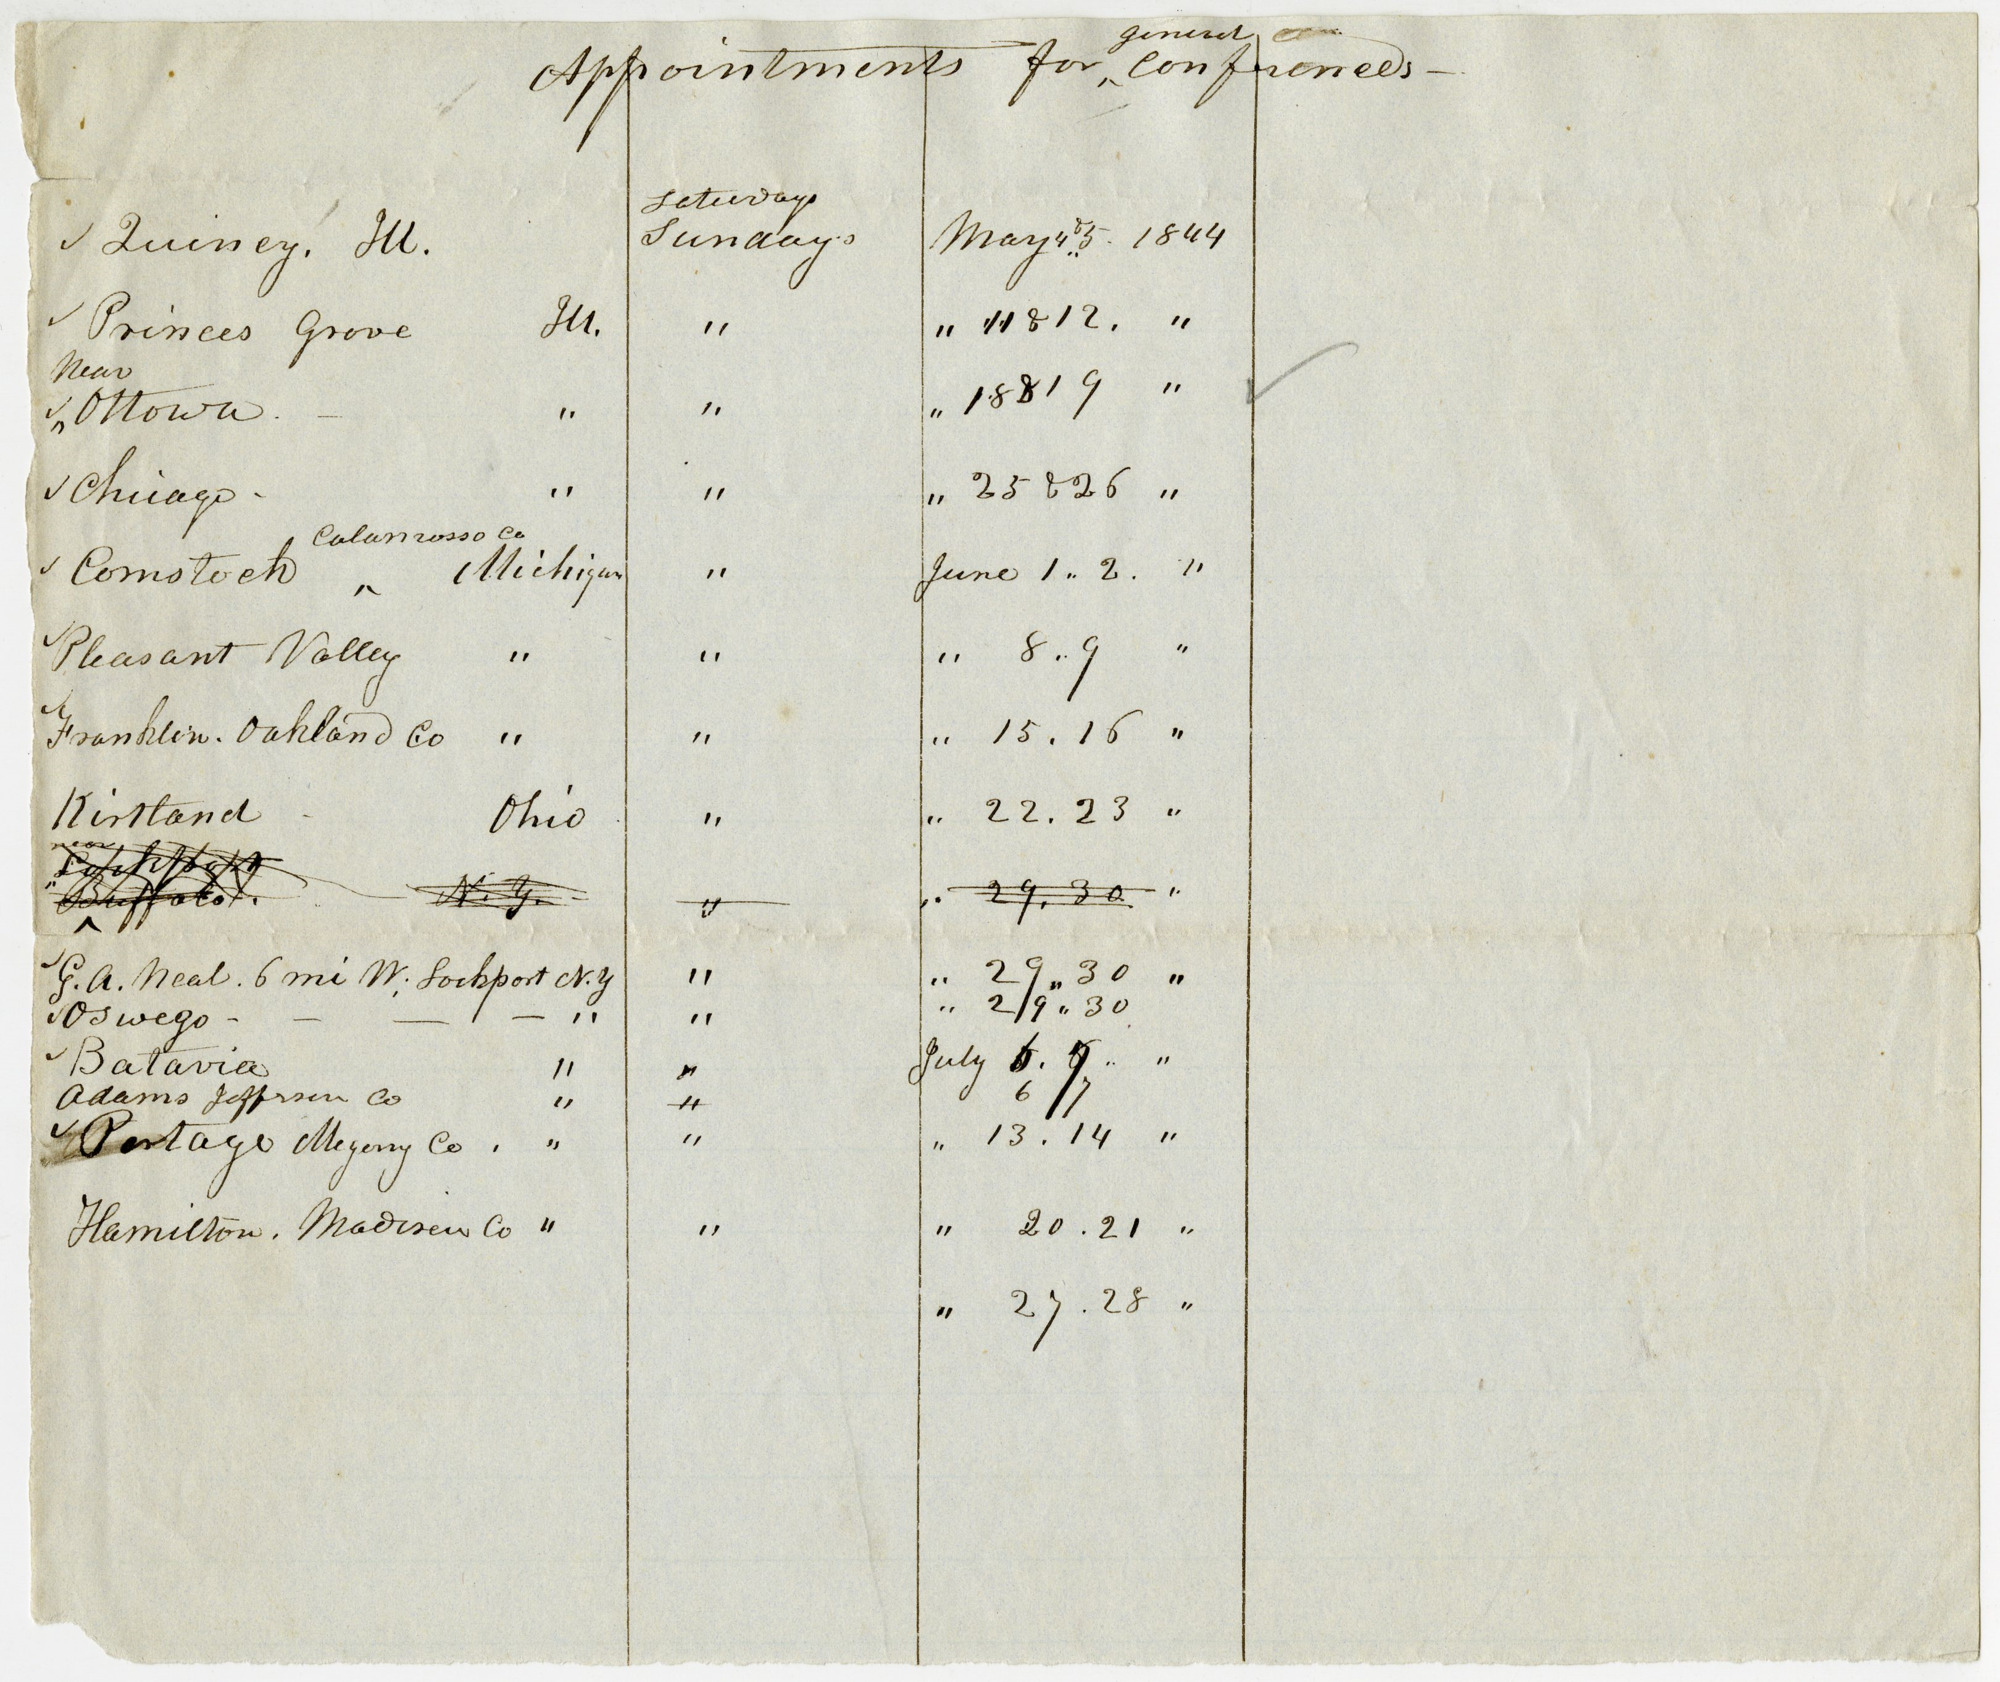 Appointments for general Conferences—
Saturdays
Quincy. Ill. Sundays May 4 & 5. 1844
Princes Grove Ill. " " 11 & 12. "
Near
Ottowa. — " " " 18 & 19 "
Chicago - " " " 25 & 26 "
Comstock Calamasso Co Michigan " June 1 " 2. "
Pleasant Valley " " " 8 " 9 "
Franklin. Oakland Co " " " 15. 16 "
Kirtland - Ohio " " 22. 23 "
near
Lockport
Buffalo. N. Y. " " 29. 30 "
G. A. Neal. 6 mi W. Lockport N. Y " " 29 " 30 "
Oswego - — — — " " " 29 " 30
Batavia " " July "
Adams Jefferson Co " " 6 7
Portage Co. " " " 13. 14 "
Hamilton. Madison Co " " " 20. 21 "
" 27. 28 "